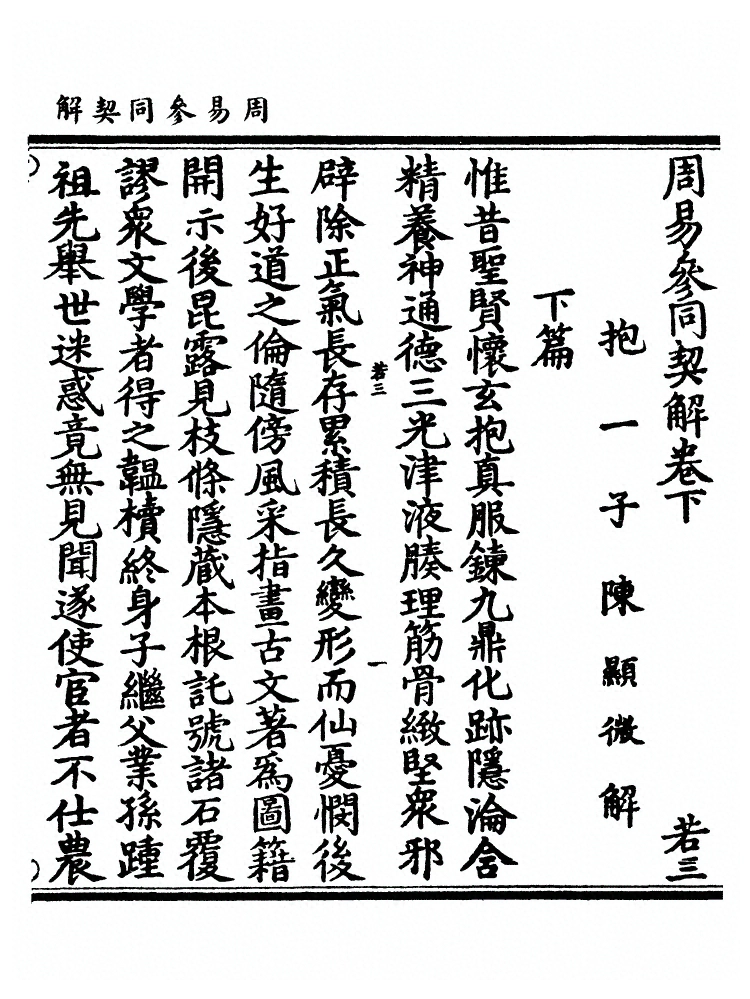 周易參同契解
周易參同契解卷下 若三
抱一子陳顯微解
下篇
惟昔聖賢懷玄抱真服鍊九鼎化跡隱淪含
精養神通德三光津液腠理筋骨緻堅衆邪
若三 一
辟除正氣長存累積長久變形而仙憂憫後
生好道之倫隨傍風采指畫古文著爲圖籍
開示後昆露見枝條隱藏本根託號諸石覆
謬衆文學者得之韞櫝終身子繼父業孫踵
祖先舉世迷惑竟無見聞遂使官者不仕農